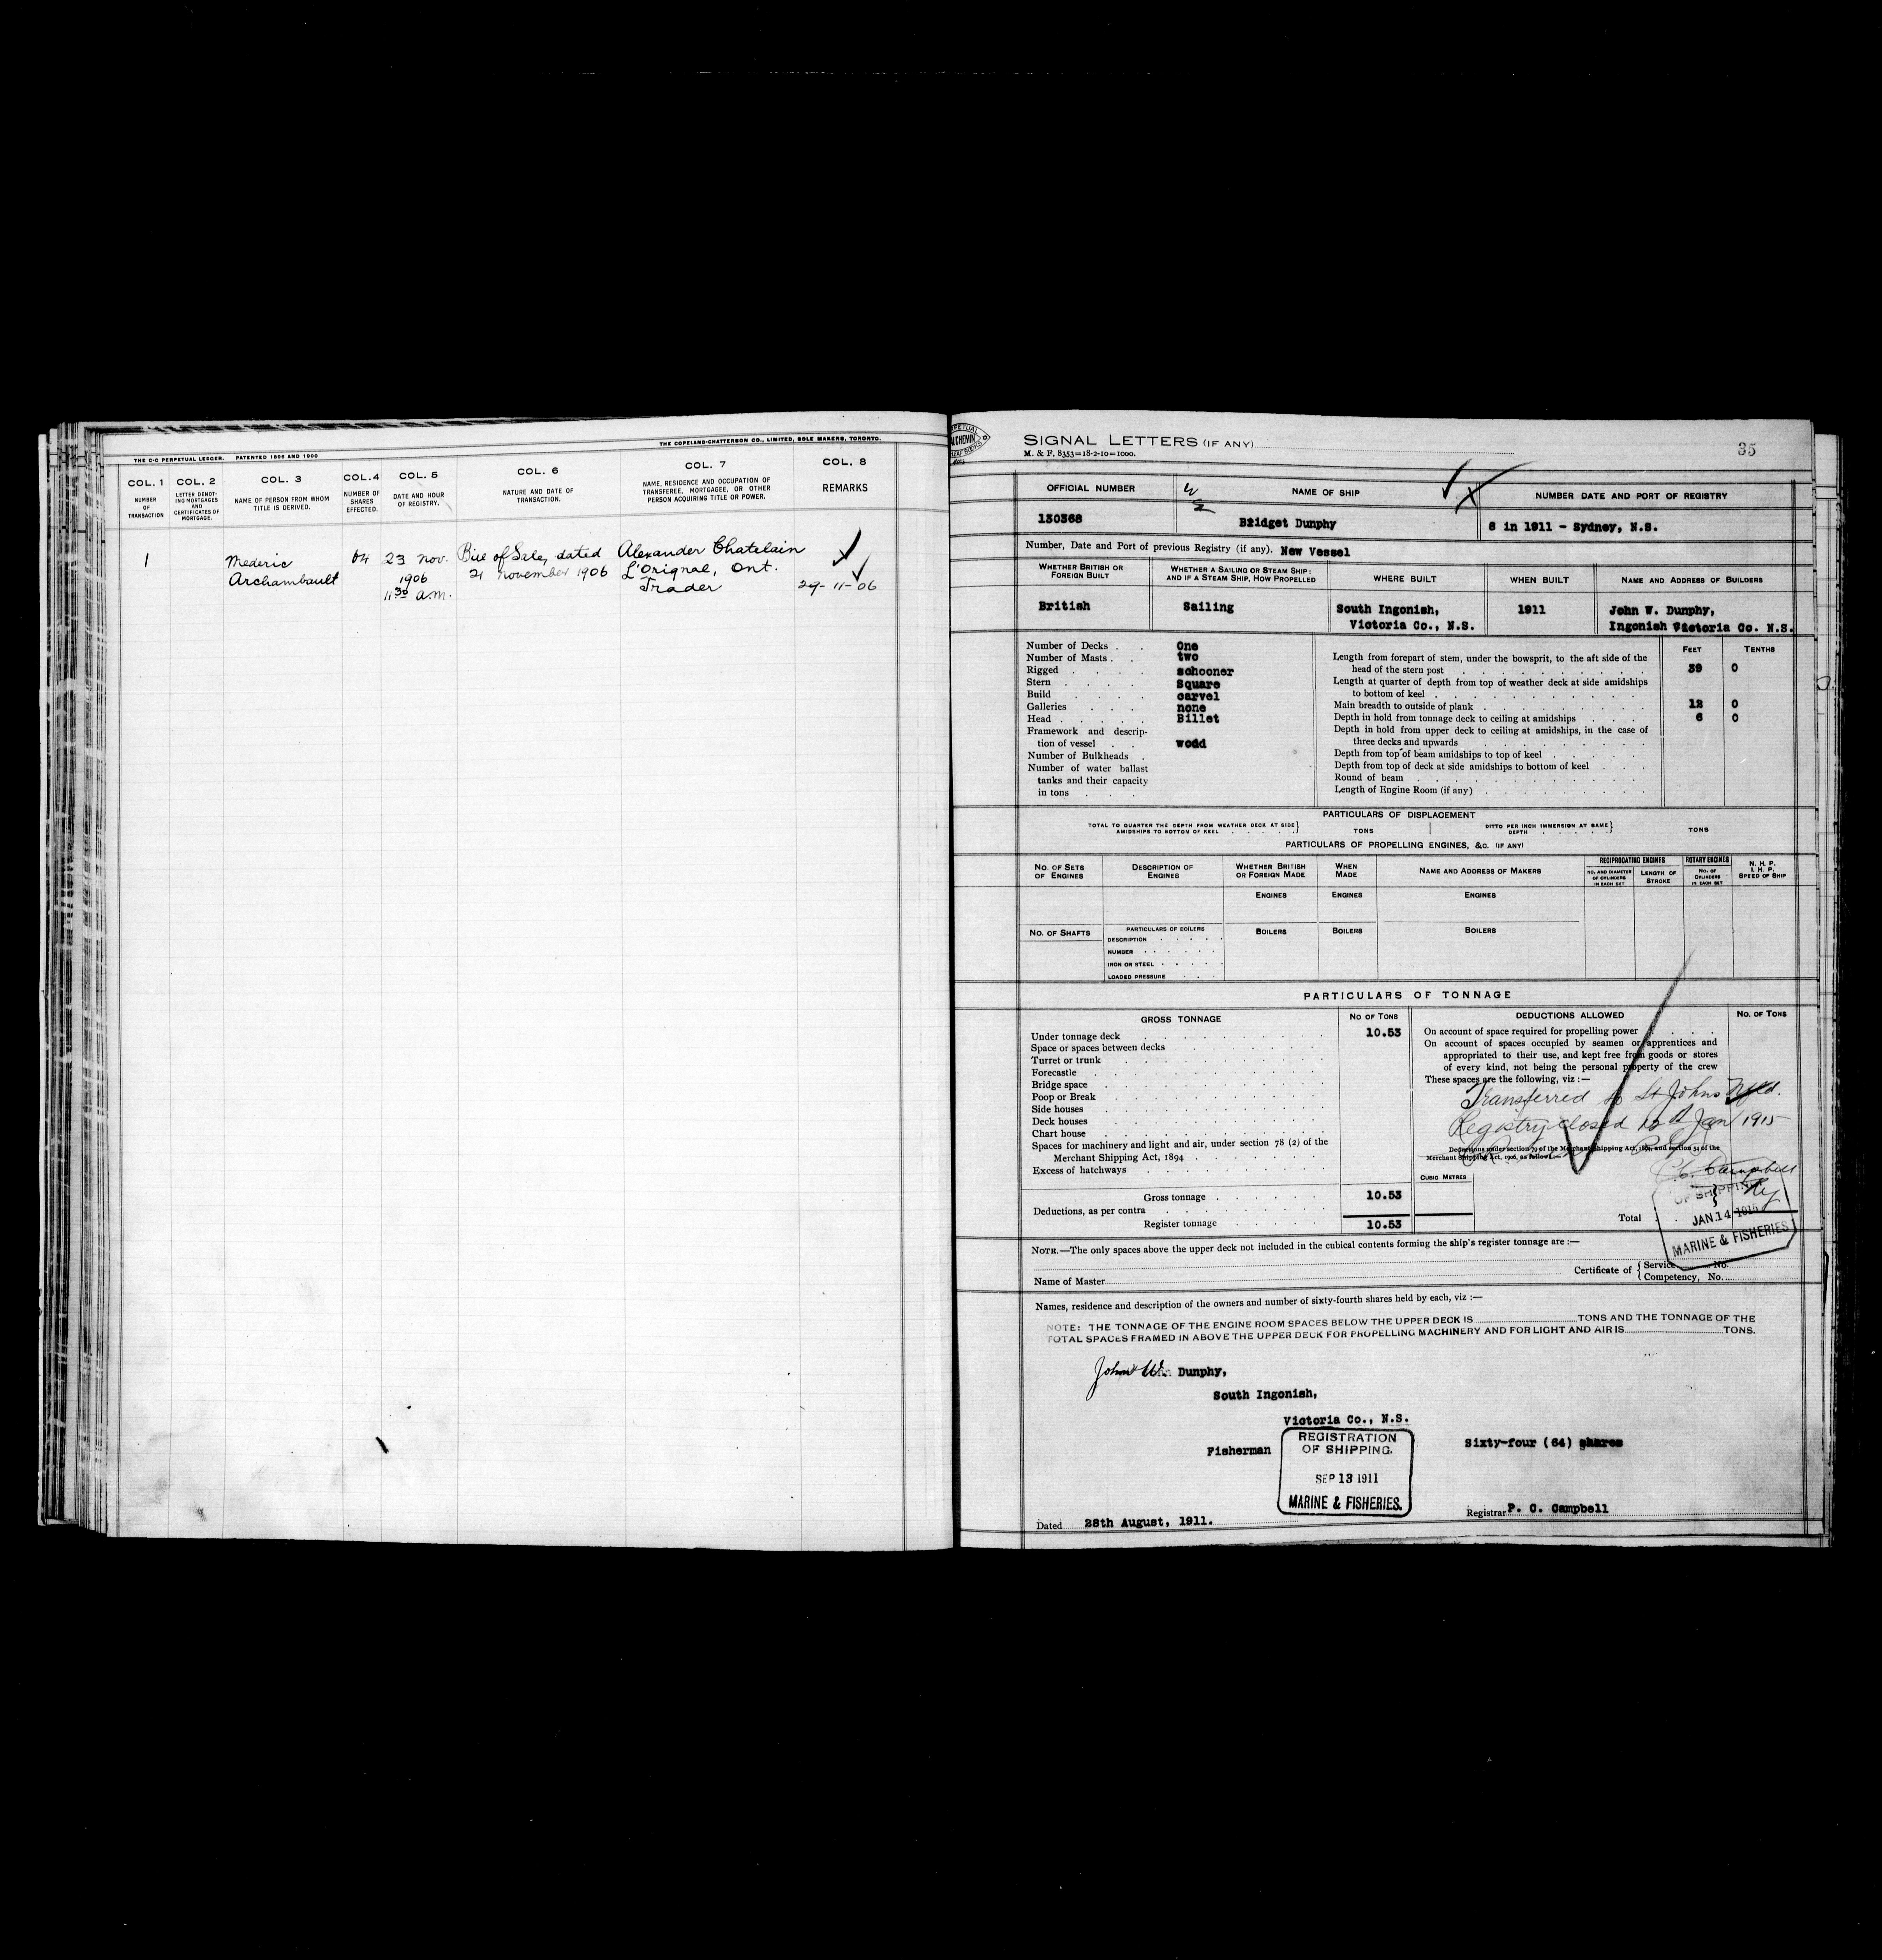 THE C-C PERPETUAL LEDGER. PATENTED 1896 AND 1900
THE COPELAND-CHATTERSON CO., LIMITED, SOLE MAKERS, TORONTO.
COL. 1
NUMBER
OF
TRANSACTION
COL. 2
LETTER DENOT-
ING MORTGAGES
AND
CERTIFICATES OF
MORTGAGE.
COL. 3
NAME OF PERSON FROM WHOM
TITLE IS DERIVED.
COL. 4
NUMBER OF
SHARES
EFFECTED.
COL. 5
DATE AND HOUR
OF REGISTRY.
COL. 6
NATURE AND DATE OF
TRANSACTION.
COL. 7
NAME, RESIDENCE AND OCCUPATION OF
TRANSFEREE, MORTGAGEE, OR OTHER
PERSON ACQUIRING TITLE OR POWER.
COL. 8
REMARKS
1
Mederic
Archambault
64
23 Nov.
1906
11 30 a.m.
Bill of Sale, dated
21 November 1906
Alexander Chatelain
L'Orignal, Ont.
Trader
29-11-06
SIGNAL LETTERS (IF ANY)
M. & F. 8353=18-2-10=1000.
35
OFFICIAL NUMBER
NAME OF SHIP
NUMBER DATE AND PORT OF REGISTRY
130368
Bridget Dunphy
8 in 1911 - Sydney, N.S.
Number, Date and Port of previous Registry (if any). New Vessel
WHETHER BRITISH OR
FOREIGN BUILT
WHETHER A SAILING OR STEAM SHIP:
AND IF A STEAM SHIP, HOW PROPELLED
WHERE BUILT
WHEN BUILT
NAME AND ADDRESS OF BUILDERS
British
Sailing
South Ingonish,
Victoria Co., N.S.
1911
John W. Dunphy,
Ingonish Victoria Co. N.S.
Number of Decks . . One
Number of Masts . . two
Rigged . . . . schooner
Stern . . . . Square
Build . . . . carvel
Galleries . . . none
Head . . . . . Billet
Framework and descrip-
tion of vessel . . wodd
Number of Bulkheads .
Number of water ballast
tanks and their capacity
in tons . . .
FEET TENTHS
Length from forepart of stem, under the bowsprit, to the aft side of the
head of the stern post 39 0
Length at quarter of depth from top of weather deck at side amidships
to bottom of keel
Main breadth to outside of plank 12 0
Depth in hold from tonnage deck to ceiling at amidships 6 0
Depth in hold from upper deck to ceiling at amidships, in the case of
three decks and upwards
Depth from top of beam amidships to top of keel
Depth from top of deck at side amidships to bottom of keel
Round of beam
Length of Engine Room (if any)
PARTICULARS OF DISPLACEMENT
TOTAL TO QUARTER THE DEPTH FROM WEATHER DECK AT SIDE
AMIDSHIPS TO BOTTOM OF KEEL
TONS
DITTO PER INCH IMMERSION AT SAME
DEPTH
TONS
PARTICULARS OF PROPELLING ENGINES, &C. (IF ANY)
NO. OF SETS
OF ENGINES
DESCRIPTION OF
ENGINES
WHETHER BRITISH
OR FOREIGN MADE
WHEN
MADE
NAME AND ADDRESS OF MAKERS
RECIPROCATING ENGINES
NO. AND DIAMETER
OF CYLINDERS
IN EACH SET
LENGTH OF
STROKE
ROTARY ENGINES
NO. OF
CYLINDERS
IN EACH SET
N. H. P.
I. H. P.
SPEED OF SHIP
ENGINES
ENGINES
ENGINES
NO. OF SHAFTS
PARTICULARS OF BOILERS
DESCRIPTION
NUMBER
IRON OR STEEL
LOADED PRESSURE
BOILERS
BOILERS
BOILERS
PARTICULARS OF TONNAGE
GROSS TONNAGE
NO OF TONS
DEDUCTIONS ALLOWED
NO. OF TONS
Under tonnage deck 10.53
Space or spaces between decks
Turret or trunk
Forecastle
Bridge space
Poop or Break
Side houses
Deck houses
Chart house
Spaces for machinery and light and air, under section 78 (2) of the
Merchant Shipping Act, 1894
Excess of hatchways
Gross tonnage 10.53
Deductions, as per contra
Register tonnage 10.53
On account of space required for propelling power
On account of spaces occupied by seamen or apprentices and
appropriated to their use, and kept free from goods or stores
of every kind, not being the personal property of the crew
These spaces are the following, viz :—
Transferred to St Johns Nfld.
Registry closed 12th Jan 1915
Deductions under section 79 of the Merchant Shipping Act, 1894, and section 54 of the
Merchant Shipping Act, 1906, as follows:—
Campbell
CUBIC METRES
OF SHIPPING
JAN 14 1915
MARINE & FISHERIES
Total
NOTE.—The only spaces above the upper deck not included in the cubical contents forming the ship's register tonnage are :—
Name of Master
Certificate of { Service No.
Competency, No.
Names, residence and description of the owners and number of sixty-fourth shares held by each, viz :—
NOTE: THE TONNAGE OF THE ENGINE ROOM SPACES BELOW THE UPPER DECK IS TONS AND THE TONNAGE OF THE
TOTAL SPACES FRAMED IN ABOVE THE UPPER DECK FOR PROPELLING MACHINERY AND FOR LIGHT AND AIR IS TONS.
John W. Dunphy,
South Ingonish,
Victoria Co., N.S.
Fisherman
Sixty-four (64) shares
REGISTRATION
OF SHIPPING.
SEP 13 1911
MARINE & FISHERIES.
Dated 28th August, 1911.
Registrar P. C. Campbell